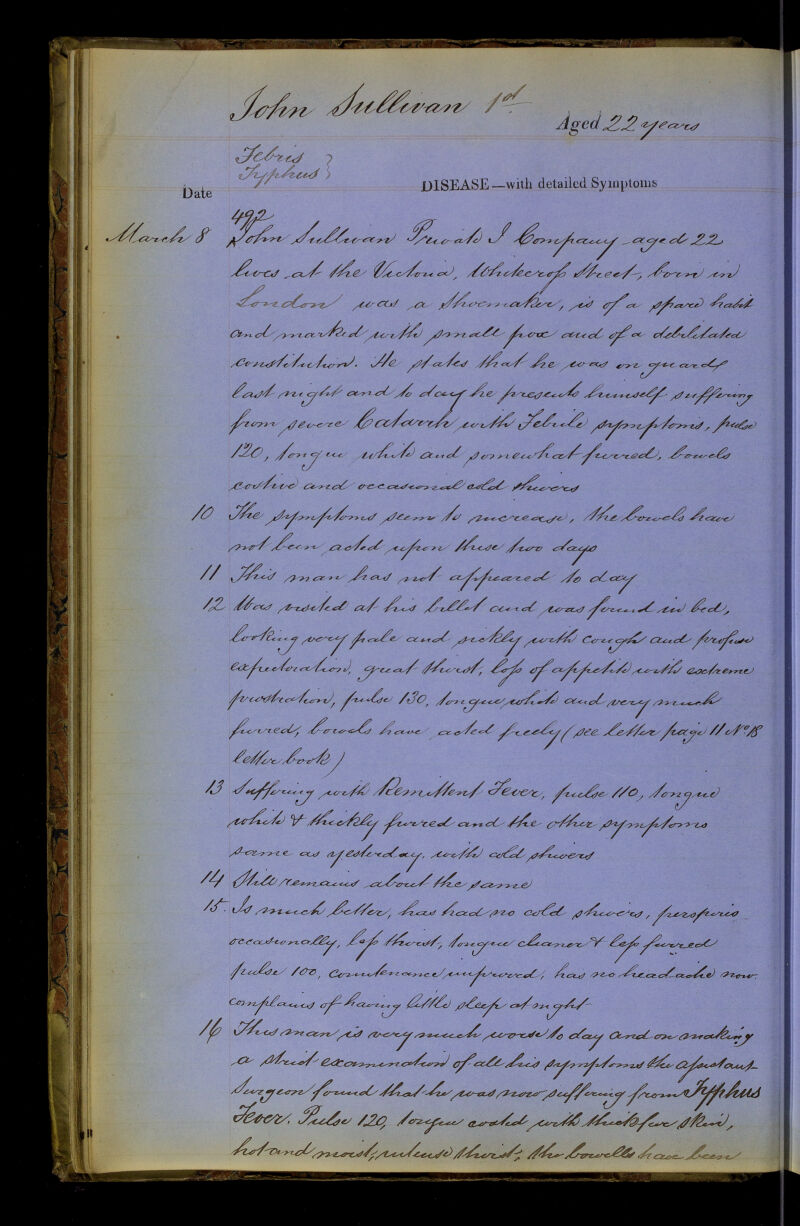 John Sullivan 1st
Aged 22 years
Febris
Typhus }
Date
DISEASE—with detailed Symptoms
492
March 8 John Sullivan Private I Company aged 22
lives at the Victoria, Whitecross Street, born in
London was a Shoemaker, is of a spare habit
and marked with small pox and of a debilitated
constitution. He states that he was on guard
last night and to day he presents himself suffering
from severe Catarrh with Febrile symptoms, pulse
120, tongue white and somewhat furred, bowels
costive and occasional cold shivers
10 The symptoms seem to increase, the bowels have
not been acted upon these two days
11 This man has not appeared to day
12 Was visited at his billet and was found in bed,
looking very pale and sickly with cough and profuse
expectoration, great thirst, loss of appetite with extreme
prostration, pulse 130, tongue white and very much
furred, bowels have acted freely (see letter page 11 No 18
letter book)
13 Suffering with Remittent Fever, pulse 110, tongue
white & thickly furred and the other symptoms
same as yesterday, with cold shivers
14 Still remains about the same
15. Is much better, has had no cold shivers, perspires
occasionally, less thirst, tongue cleaner & less furred
pulse 100, countenance improved, has no headache now.
complains of having little sleep at night
16 This man is very much worse to day and on making
a strict examination of all his symptoms the assistant
Surgeon found that he was now suffering from Typhus
Fever. Pulse 120, tongue coated with thick fur skin,
hot and moist, intense thirst, the bowells have been